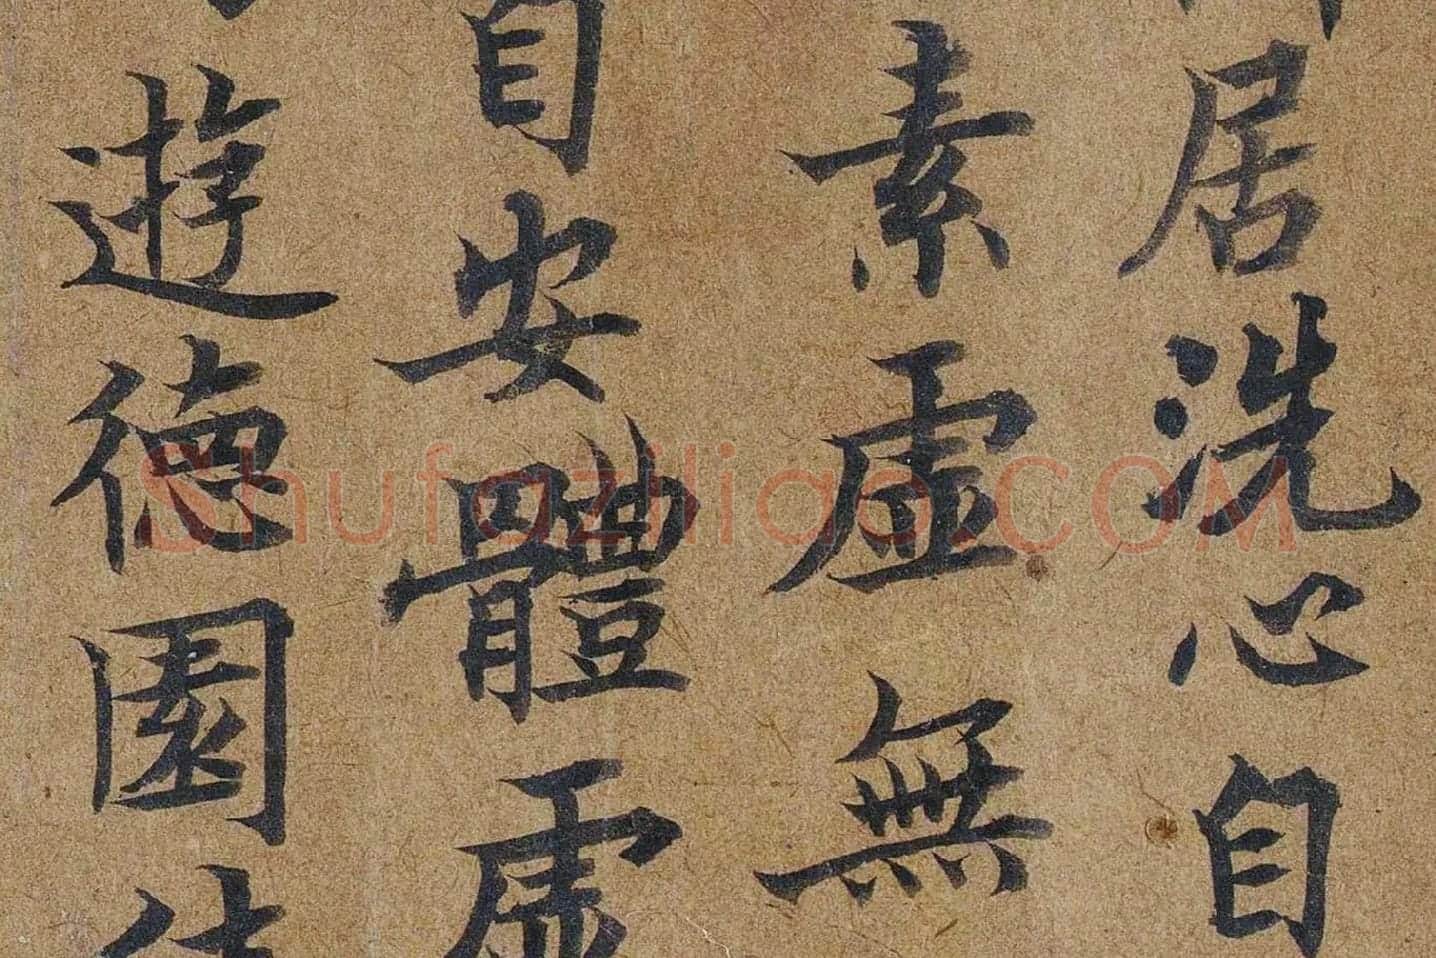 居洗心自
素虛無
自安體虛
遊德園
Shufaziliao.COM